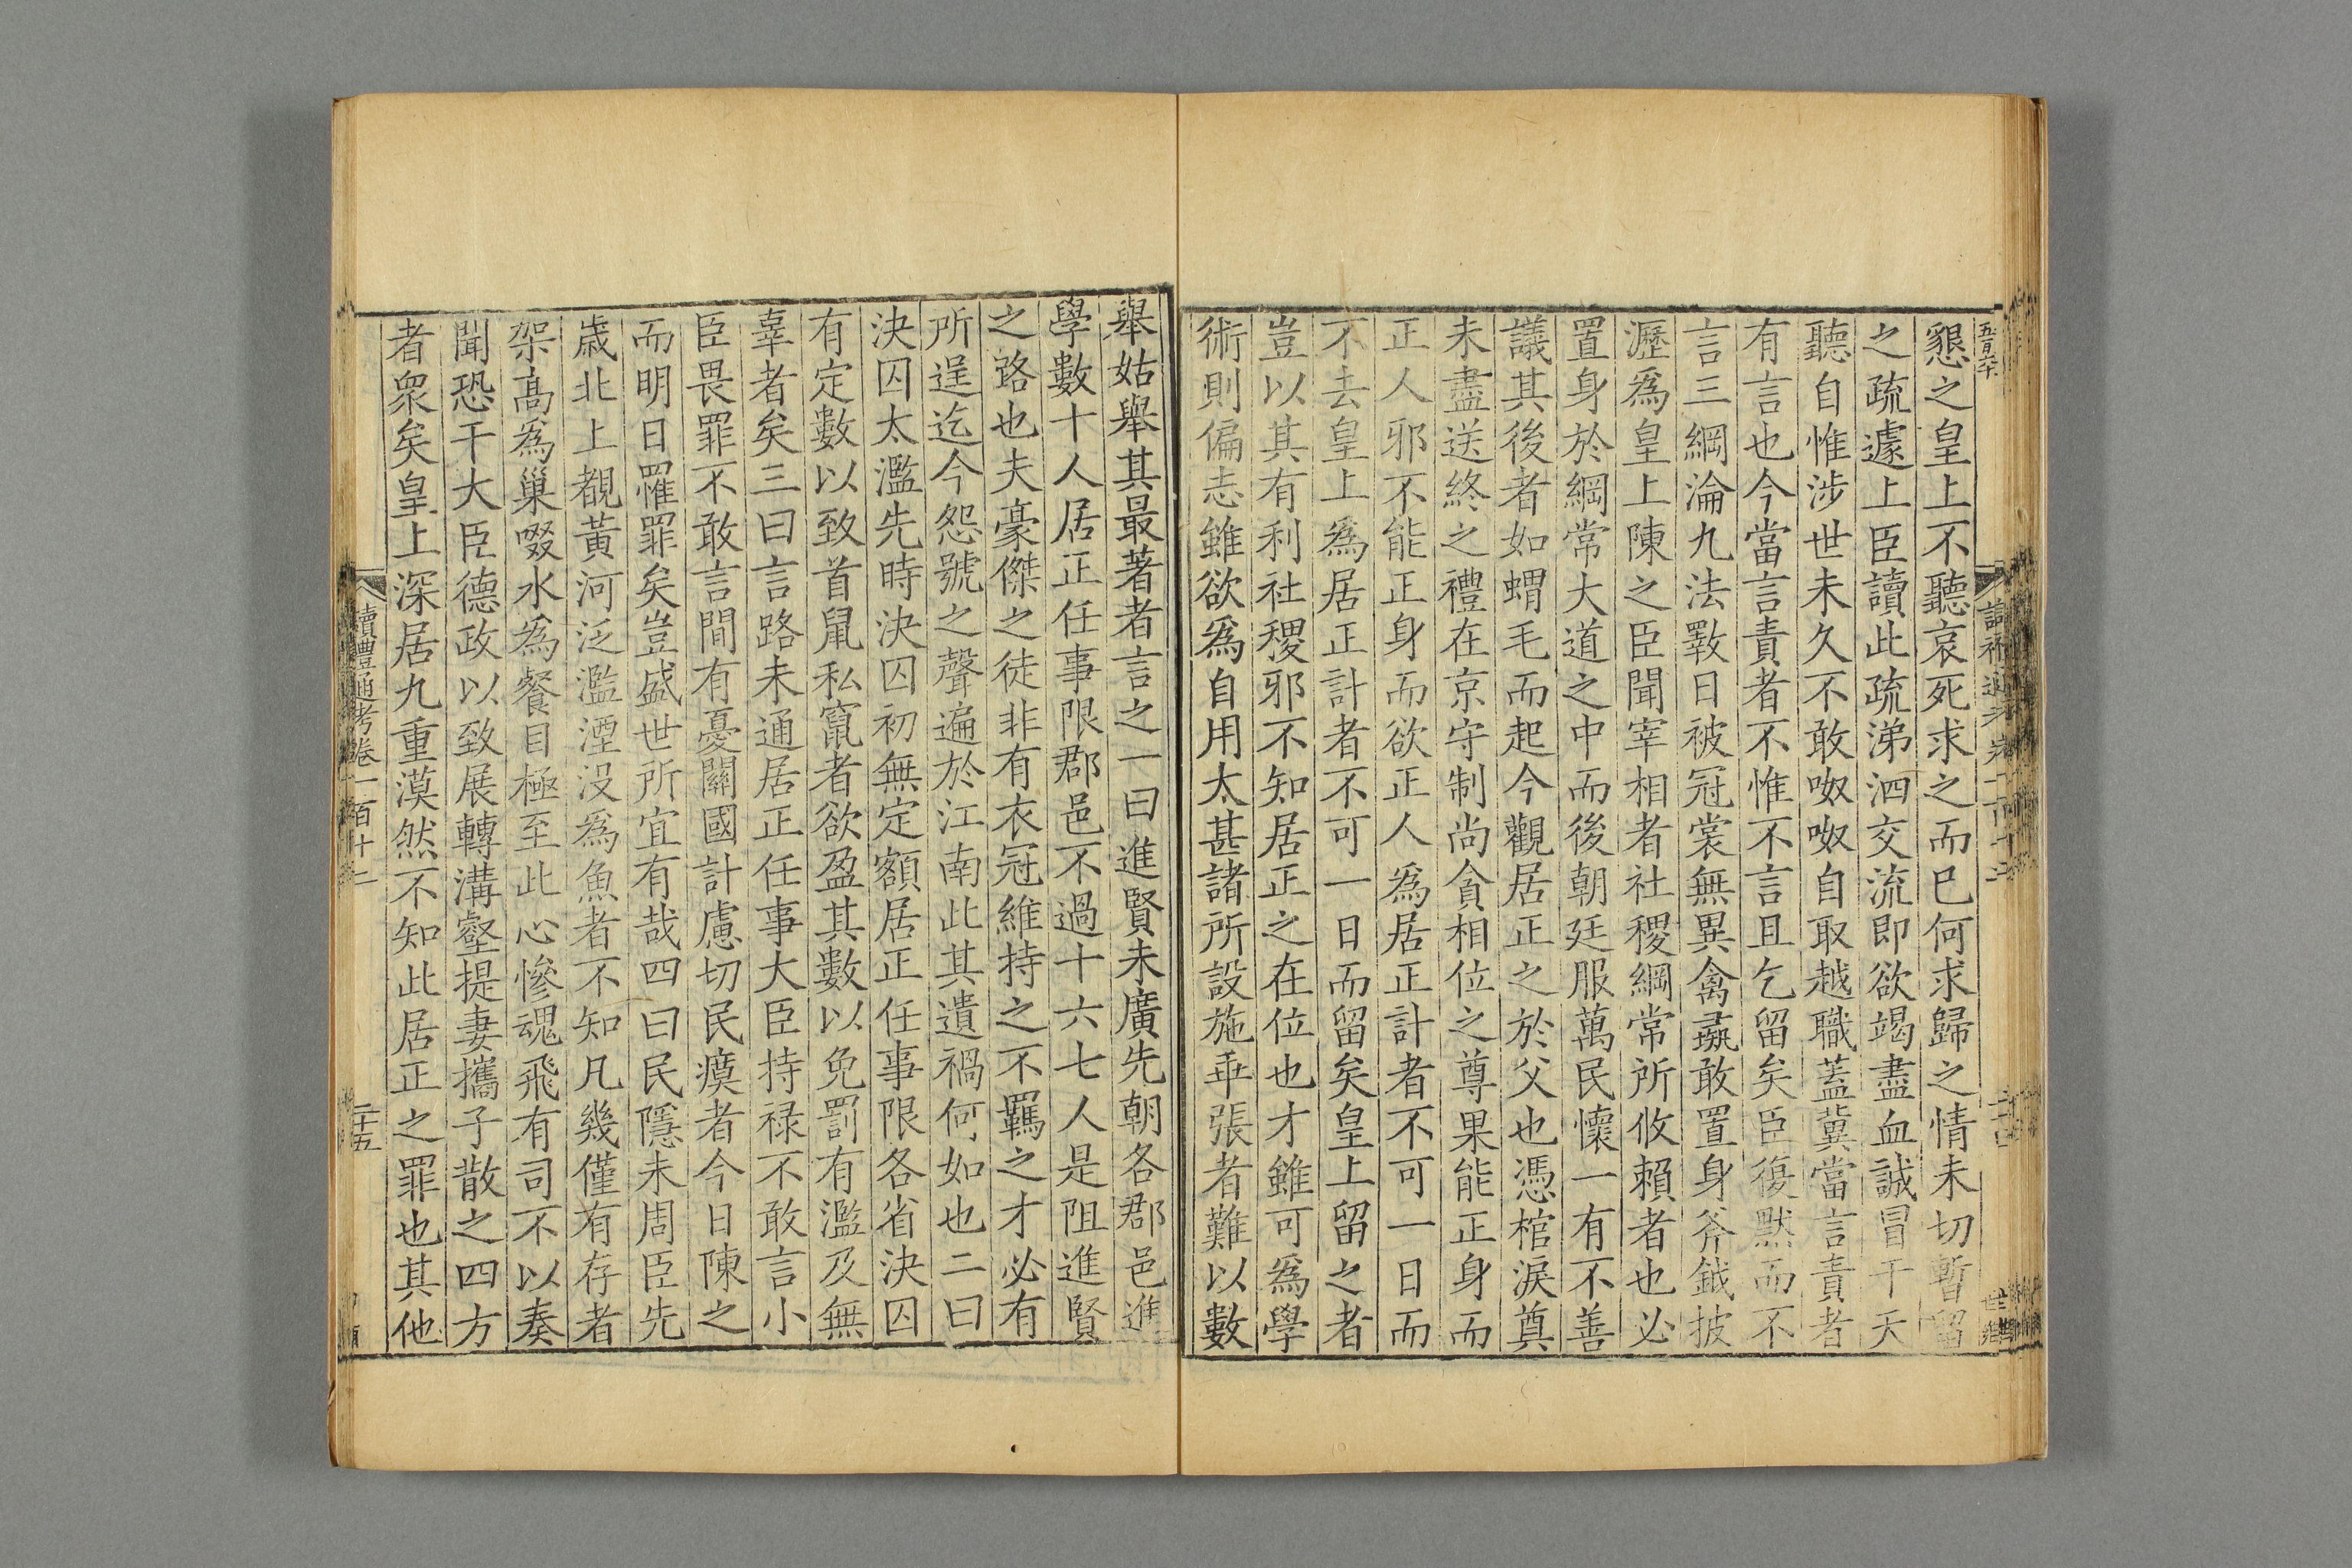 懇之皇上不聽哀死求之而已何求歸之情未切暫留
之疏遽上臣讀此疏涕泗交流即欲竭盡血誠冒干天
聽自惟涉世未久不敢呶呶自取越職蓋冀當言責者
有言也今當言責者不惟不言且乞留矣臣復默而不
言三綱淪九法斁日被冠裳無異禽彘敢置身斧鉞披
瀝爲皇上陳之臣聞宰相者社稷綱常所攸賴者也必
置身於綱常大道之中而後朝廷服萬民懷一有不善
議其後者如蝟毛而起今觀居正之於父也憑棺淚奠
未盡送終之禮在京守制尚貪相位之尊果能正身而
正人邪不能正身而欲正人爲居正計者不可一日而
不去皇上爲居正計者不可一日而留矣皇上留之者
豈以其有利社稷邪不知居正之在位也才雖可爲學
術則偏志雖欲爲自用太甚諸所設施乖張者難以數
舉姑舉其最著者言之一曰進賢未廣先朝各郡邑進
學數十人居正任事限郡邑不過十六七人是阻進賢
之路也夫豪傑之徒非有衣冠維持之不羈之才必有
所逞迄今怨號之聲遍於江南此其遺禍何如也二曰
決囚太濫先時決囚初無定額居正任事限各省決囚
有定數以致首鼠私竄者欲盈其數以免罰有濫及無
辜者矣三曰言路未通居正任事大臣持祿不敢言小
臣畏罪不敢言間有憂關國計慮切民瘼者今日陳之
而明日罹罪矣豈盛世所宜有哉四曰民隱未周臣先
歲北上覩黃河泛濫湮没爲魚者不知凡幾僅有存者
架高爲巢啜水爲餐目極至此心慘魂飛有司不以奏
聞恐干大臣德政以致展轉溝壑提妻攜子散之四方
者衆矣皇上深居九重漠然不知此居正之罪也其他
讀禮通考卷一百十二
二十五